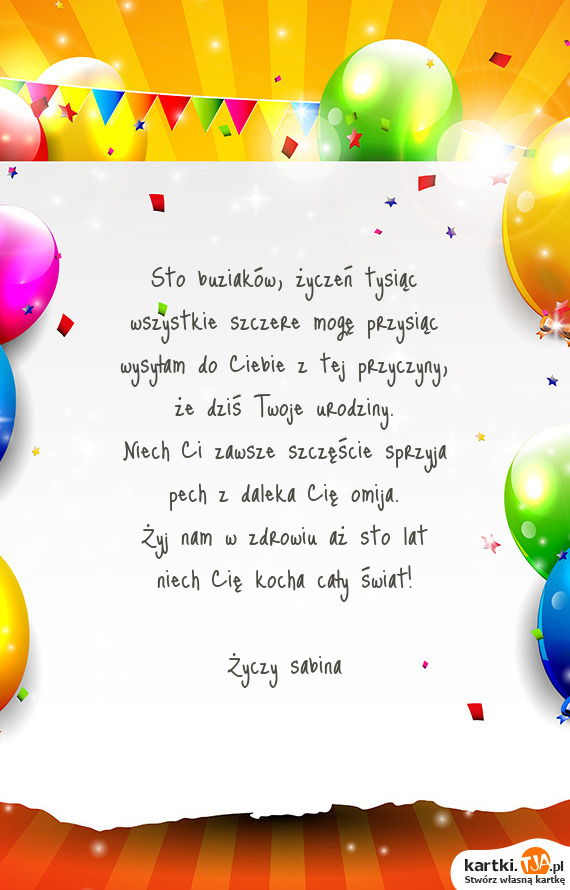 Sto buziaków, życzeń tysiąc
wszystkie szczere mogę przysiąc
wysyłam do Ciebie z tej przyczyny,
że dziś Twoje urodziny.
Niech Ci zawsze szczęście sprzyja
pech z daleka Cię omija.
Żyj nam w zdrowiu aż sto lat
niech Cię kocha cały świat!
Życzy sabina
kartki.TJA.pl
Stwórz własną kartkę